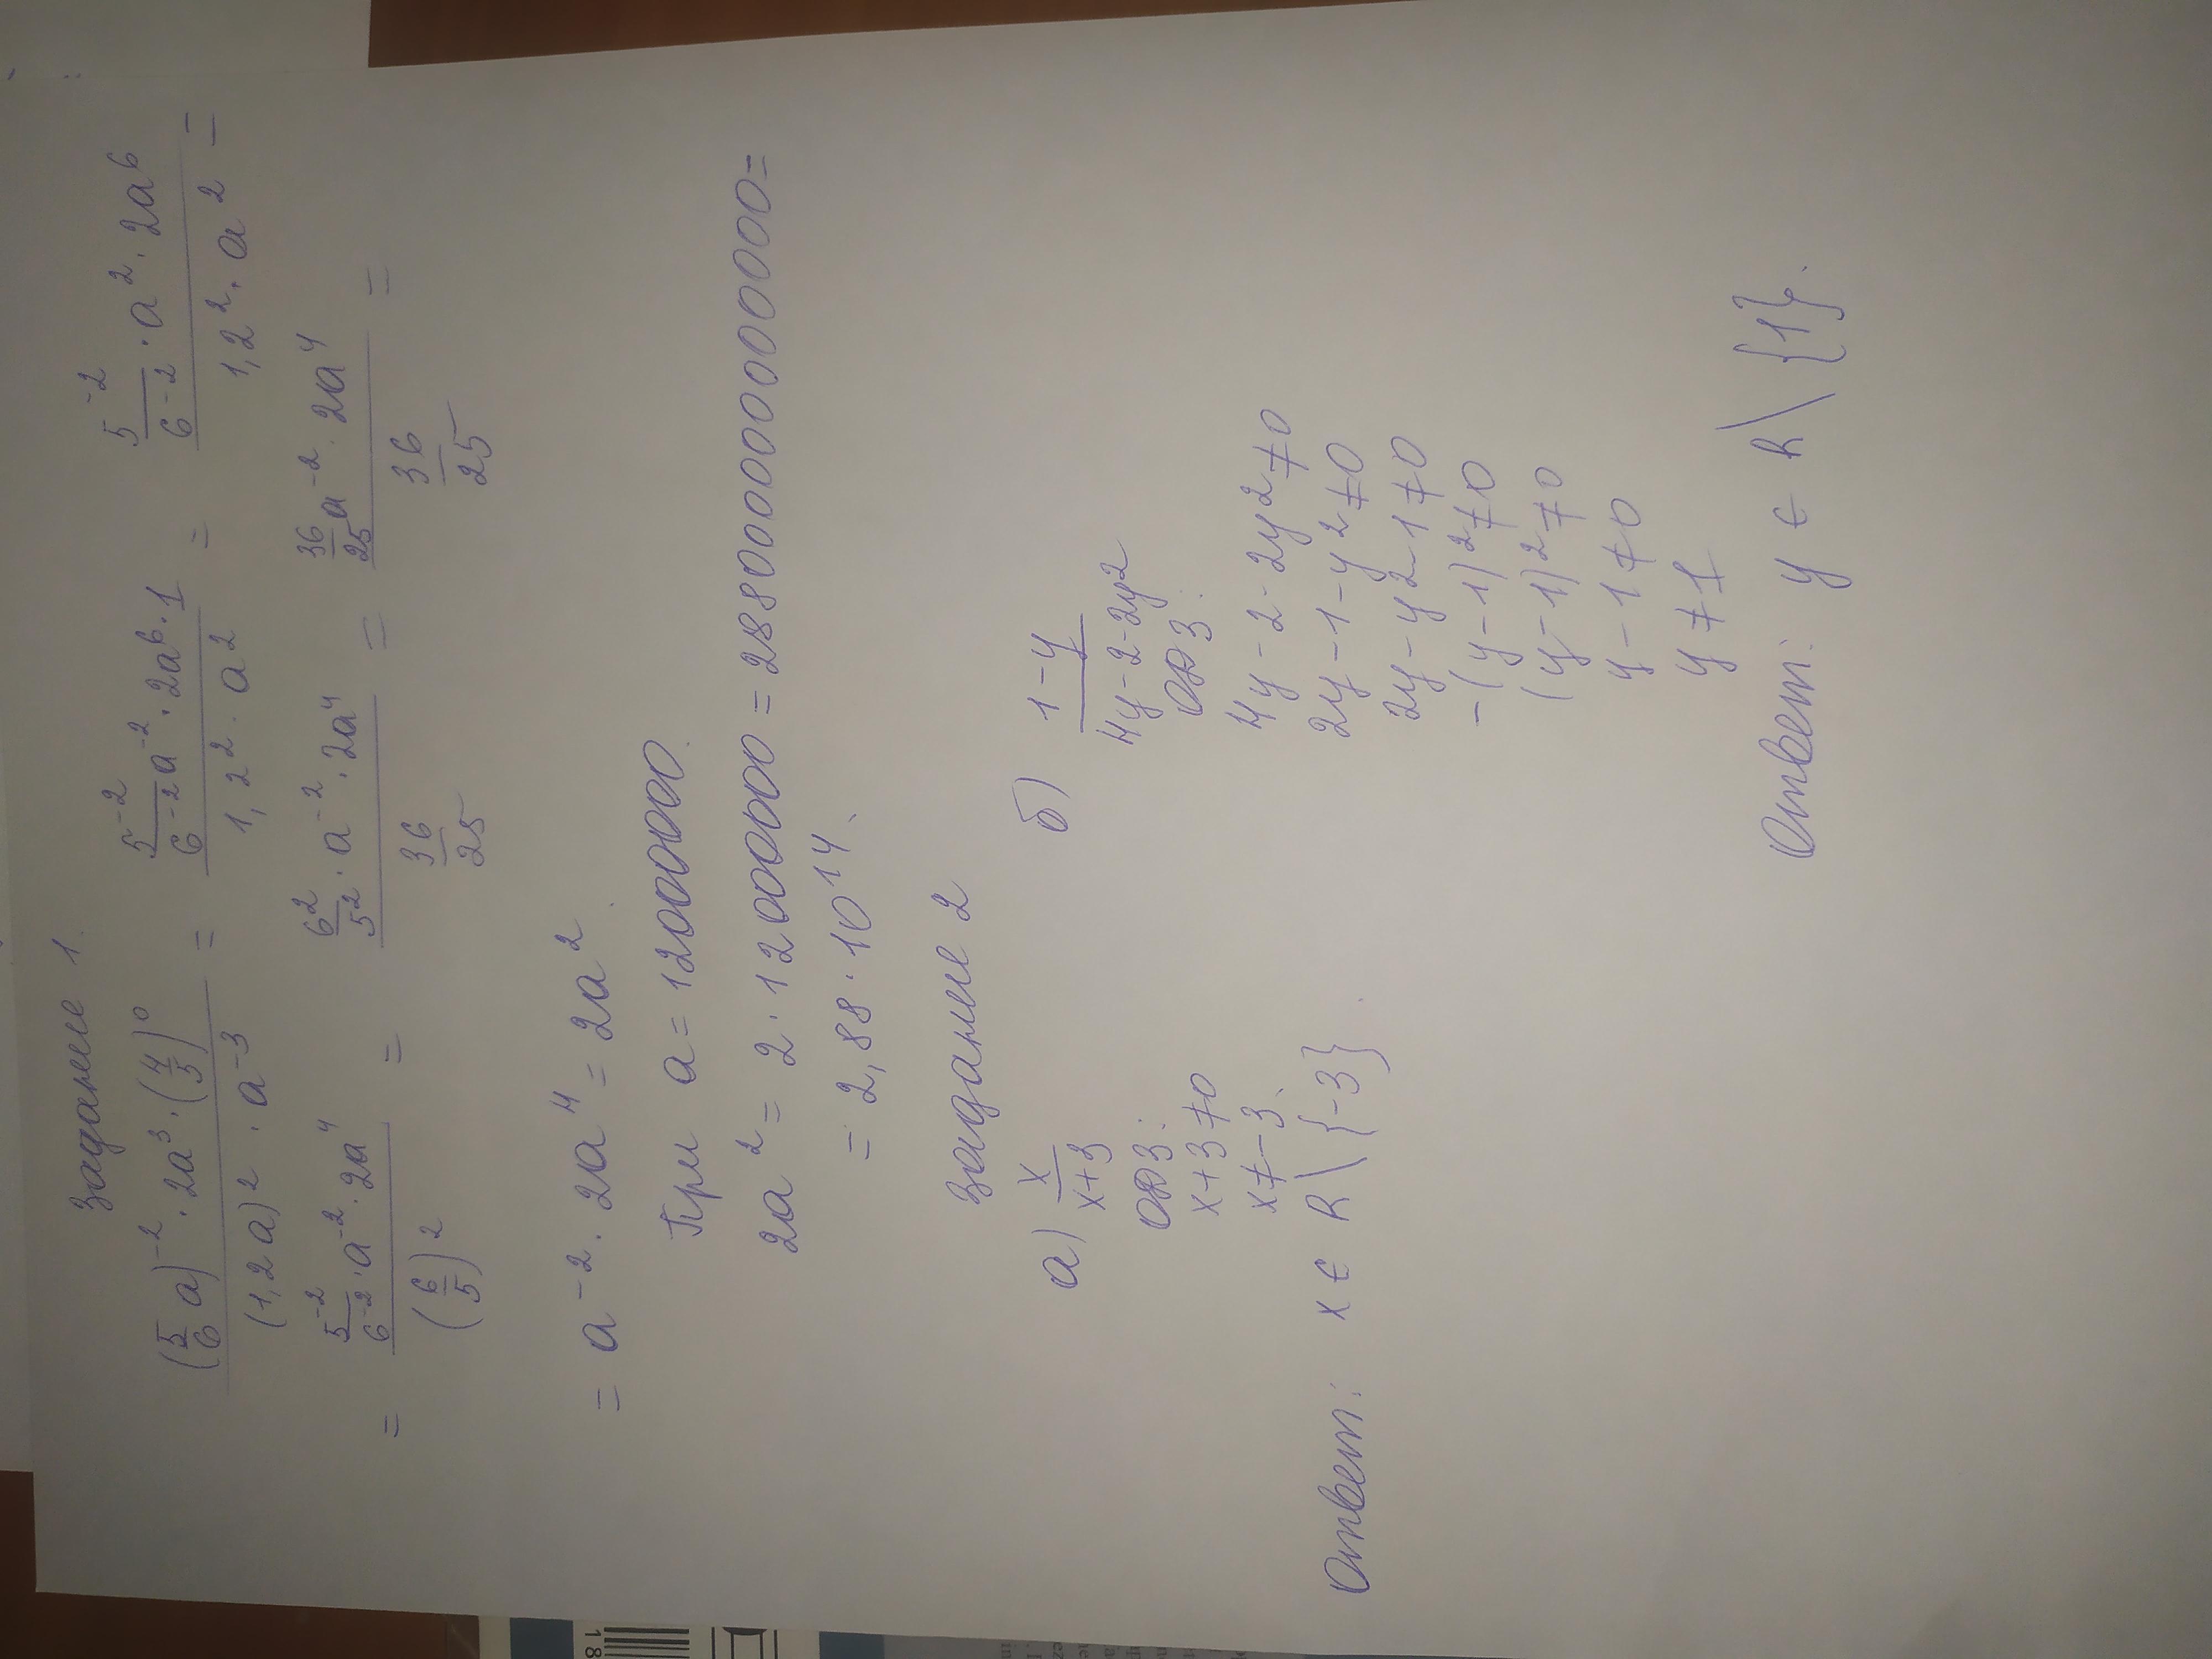 Задание 1.
(5/6 a)^-2 · 2a^3 · (4/5)^0 / (1,2a)^2 · a^-3 = 5^-2/6^-2 a^-2 · 2a^6 · 1 / 1,2^2 · a^2 = 5^-2/6^-2 · a^2 · 2a^6 / 1,2^2 · a^2 =
= 5^-2/6^-2 · a^-2 · 2a^4 / (6/5)^2 = 6^2/5^2 · a^-2 · 2a^4 / 36/25 = 36/25 a^-2 · 2a^4 / 36/25 =
= a^-2 · 2a^4 = 2a^2.
При a = 12000000.
2a^2 = 2 · 12000000 = 288000000000000 =
= 2,88 · 10^14.
Задание 2
а) x/(x+3)
ОДЗ:
x+3≠0
x≠-3.
Ответ: x ∈ R \ {-3}.
б) 1-y / 4y-2-2y^2
ОДЗ:
4y-2-2y^2≠0
2y-1-y^2≠0
2y-y^2-1≠0
-(y-1)^2≠0
(y-1)^2≠0
y-1≠0
y≠1
Ответ: y ∈ R \ {1}.
18